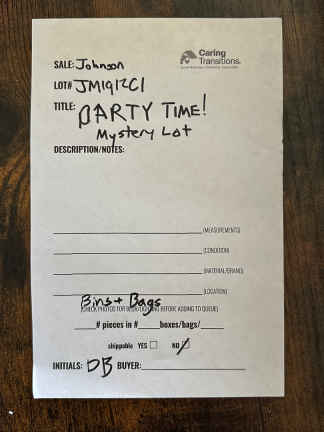 Caring
Transitions
SALE: Johnson
LOT# JM1912C1
TITLE: PARTY TIME!
Mystery Lot
DESCRIPTION/NOTES:
(MEASUREMENTS)
(CONDITION)
(MATERIAL/BRAND)
(LOCATION)
Bins + Bags
(CHECK PHOTOS FOR BEFORE ADDING TO QUEUE)
# pieces in # boxes/bags/
shippable YES NO
INITIALS: DB BUYER: